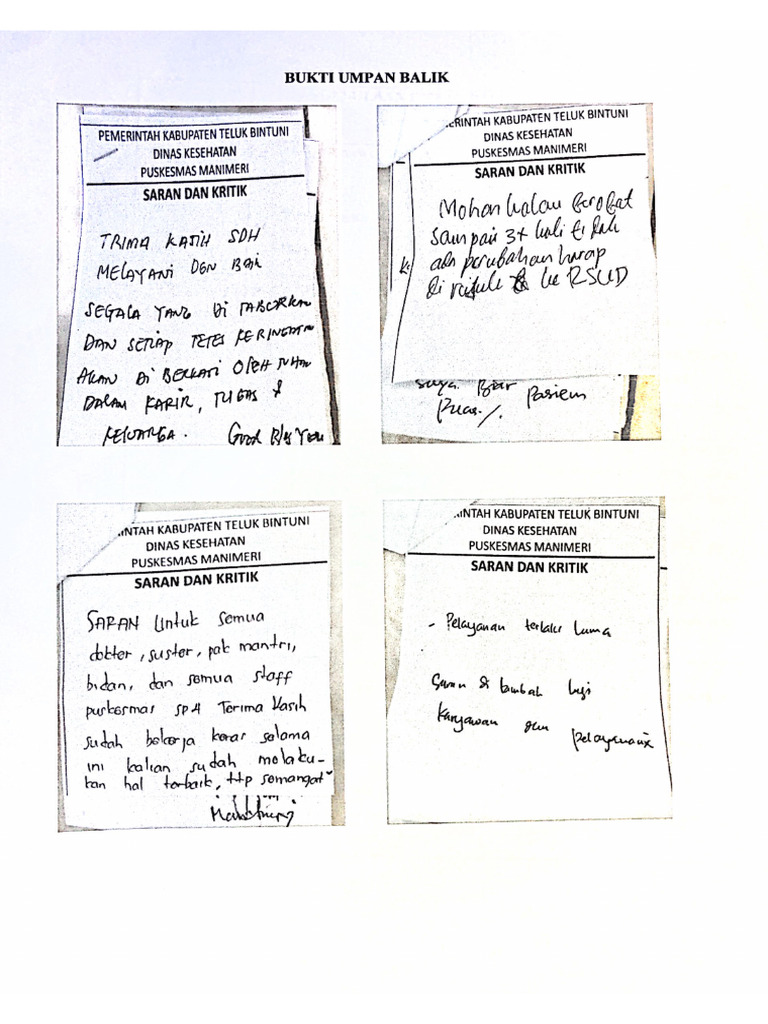 BUKTI UMPAN BALIK
PEMERINTAH KABUPATEN TELUK BINTUNI
DINAS KESEHATAN
PUSKESMAS MANIMERI
SARAN DAN KRITIK
TRIMA KASIH SDH
MELAYANI DGN BAIK
SEGALA YANG DI TABURKAN
DAN SETIAP TETES KERINGATAN
AKAN DI BERKATI OLEH TUHAN
DALAM KARIR, TUGAS &
KELUARGA. God Bless You
ERINTAH KABUPATEN TELUK BINTUNI
DINAS KESEHATAN
PUSKESMAS MANIMERI
SARAN DAN KRITIK
Mohon kalau berobat
sampai 3x kali tidak
ada perubahan harap
di rujuk ke RSUD
saya. Biar pasien
puas./.
INTAH KABUPATEN TELUK BINTUNI
DINAS KESEHATAN
PUSKESMAS MANIMERI
SARAN DAN KRITIK
SARAN Untuk semua
dokter, suster, pak mantri,
bidan, dan semua staff
puskesmas sp4 Terima Kasih
sudah bekerja keras selama
ini kalian sudah melaku-
kan hal terbaik, ttp semangat
INTAH KABUPATEN TELUK BINTUNI
DINAS KESEHATAN
PUSKESMAS MANIMERI
SARAN DAN KRITIK
- Pelayanan terlalu lama
Saran di tambah lagi
Karyawan dan pelayananx